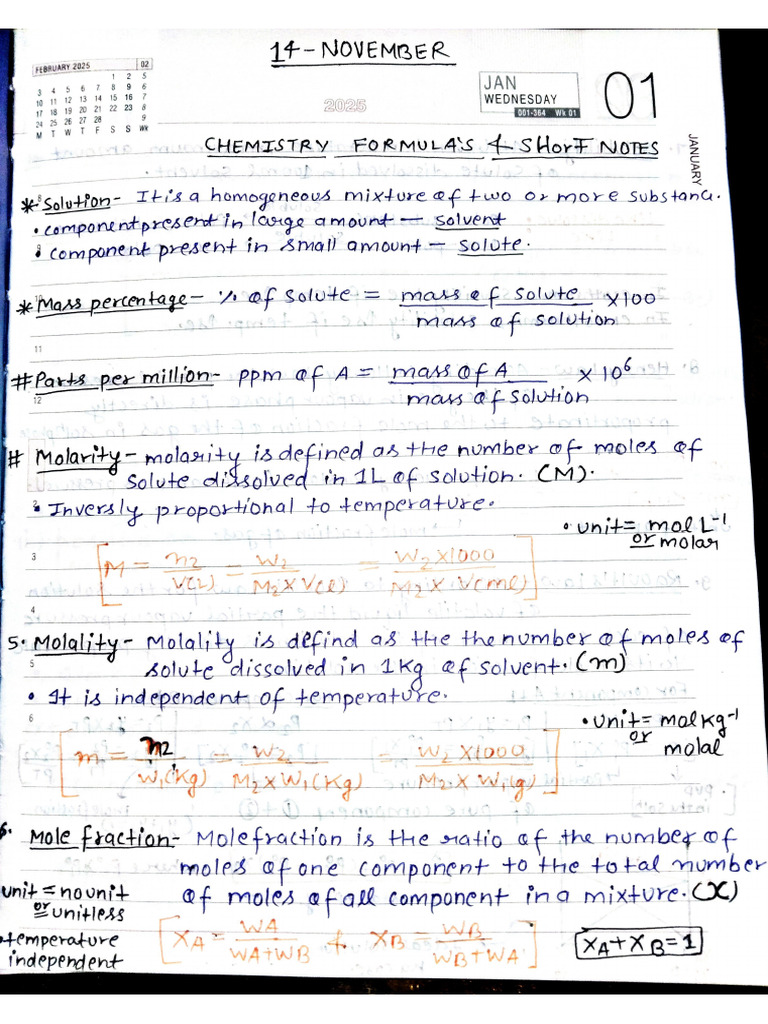 14-NOVEMBER
FEBRUARY 2025 02
1 2 5
3 4 5 6 7 8 9 6
10 11 12 13 14 15 16 7
17 18 19 20 21 22 23 8
24 25 26 27 28 9
M T W T F S S Wk
2025
JAN
WEDNESDAY
001-364 Wk 01
01
JANUARY
CHEMISTRY FORMULA'S & SHORT NOTES
* Solution- It is a homogeneous mixture of two or more substanc.
• component present in large amount — solvent
• component present in small amount — solute.
* Mass percentage - % of solute = mass of solute / mass of solution ×100
11
# Parts per million- ppm of A = mass of A / mass of solution × 10⁶
12
# Molarity - molarity is defined as the number of moles of
solute dissolved in 1L of solution. (M).
• Inversly proportional to temperature.
• unit = mol L⁻¹
or molar
3
[M = n2 / V(L) = W2 / M2 × V(l) = W2 × 1000 / M2 × V(ml)]
4
5. Molality - Molality is defind as the the number of moles of
5
solute dissolved in 1Kg of solvent. (m)
• It is independent of temperature.
6
• unit = mol kg⁻¹
or molal
[m = n2 / W1(Kg) = W2 / M2 × W1(Kg) = W2 × 1000 / M2 × W1(g)]
6. Mole fraction - Mole fraction is the ratio of the number of
moles of one component to the total number
of moles of all component in a mixture. (X)
unit = no unit
or unitless
• temperature
independent
[XA = WA / WA+WB & XB = WB / WB+WA]
XA + XB = 1